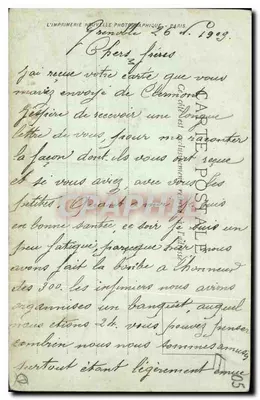 L'IMPRIMERIE NOUVELLE PHOTOGRAPHIQUE - PARIS
Grenoble 26 1909
Chers frères
J'ai recue votre carte que vous
m'aviez envoyé de Clermont
J'espère de recevoir une longue
lettre de vous, pour me raconter
la façon dont ils vous ont reçue
et si vous aviez avec vous les
petites. je suis
en bonne santée, ce soir je suis un
peu fatigué, parceque hier nous
avons fait la à l'honneur
des 300. les infirmiers nous avons
organnises un banquet, auquel
nous etions 24. vous pouvez penser
combien nous nous sommes amusés
surtout étant légèrement émue
CARTE POSTALE